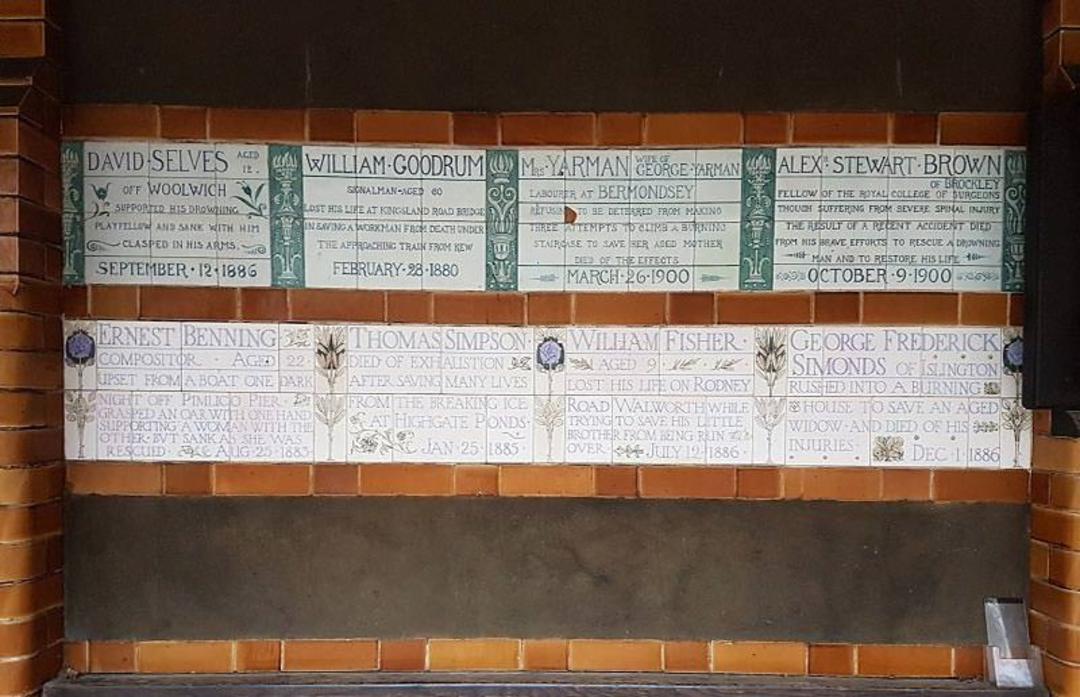 DAVID·SELVES AGED 12.
OFF WOOLWICH
SUPPORTED HIS DROWNING
PLAYFELLOW AND SANK WITH HIM
CLASPED IN HIS ARMS.
SEPTEMBER·12·1886
WILLIAM·GOODRUM
SIGNALMAN·AGED 60
LOST HIS LIFE AT KINGSLAND ROAD BRIDGE
IN SAVING A WORKMAN FROM DEATH UNDER
THE APPROACHING TRAIN FROM KEW
FEBRUARY·28·1880
MRS YARMAN WIFE OF GEORGE·YARMAN
LABOURER AT BERMONDSEY
REFUSING TO BE DETERRED FROM MAKING
THREE ATTEMPTS TO CLIMB A BURNING
STAIRCASE TO SAVE HER AGED MOTHER
DIED OF THE EFFECTS
MARCH·26·1900
ALEXR STEWART·BROWN
OF BROCKLEY
FELLOW OF THE ROYAL COLLEGE OF SURGEONS
THOUGH SUFFERING FROM SEVERE SPINAL INJURY
THE RESULT OF A RECENT ACCIDENT DIED
FROM HIS BRAVE EFFORTS TO RESCUE A DROWNING
MAN AND TO RESTORE HIS LIFE
OCTOBER·9·1900
ERNEST BENNING
COMPOSITOR · AGED 22
UPSET FROM A BOAT ONE DARK
NIGHT OFF PIMLICO PIER
GRASPED AN OAR WITH ONE HAND
SUPPORTING A WOMAN WITH THE
OTHER·BVT SANK AS SHE WAS
RESCUED· AUG·25·1883
THOMAS SIMPSON·
DIED OF EXHAUSTION
AFTER SAVING MANY LIVES
FROM THE BREAKING ICE
AT HIGHGATE PONDS·
JAN·25·1885·
WILLIAM FISHER·
AGED 9
LOST HIS LIFE ON RODNEY
ROAD WALWORTH WHILE
TRYING TO SAVE HIS LITTLE
BROTHER FROM BEING RUN
OVER· JULY·12·1886
GEORGE FREDERICK
SIMONDS OF ISLINGTON
RUSHED INTO A BURNING
HOUSE TO SAVE AN AGED
WIDOW·AND DIED OF HIS
INJURIES· DEC·1·1886